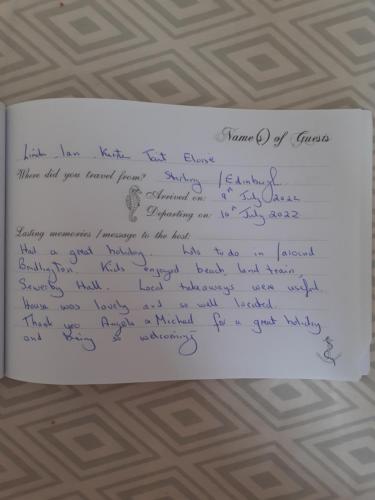 Name(s) of Guests
Linda Ian Kirsten Tait Eloise
Where did you travel from? Stirling / Edinburgh
Arrived on: 9th July 2022
Departing on: 16th July 2022
Lasting memories / message to the host:
Had a great holiday. Lots to do in / around
Bridlington. Kids enjoyed beach, land train,
Sewerby Hall. Local takeaways were useful
House was lovely and so well located.
Thank you Angela & Michael for a great holiday
and being so welcoming